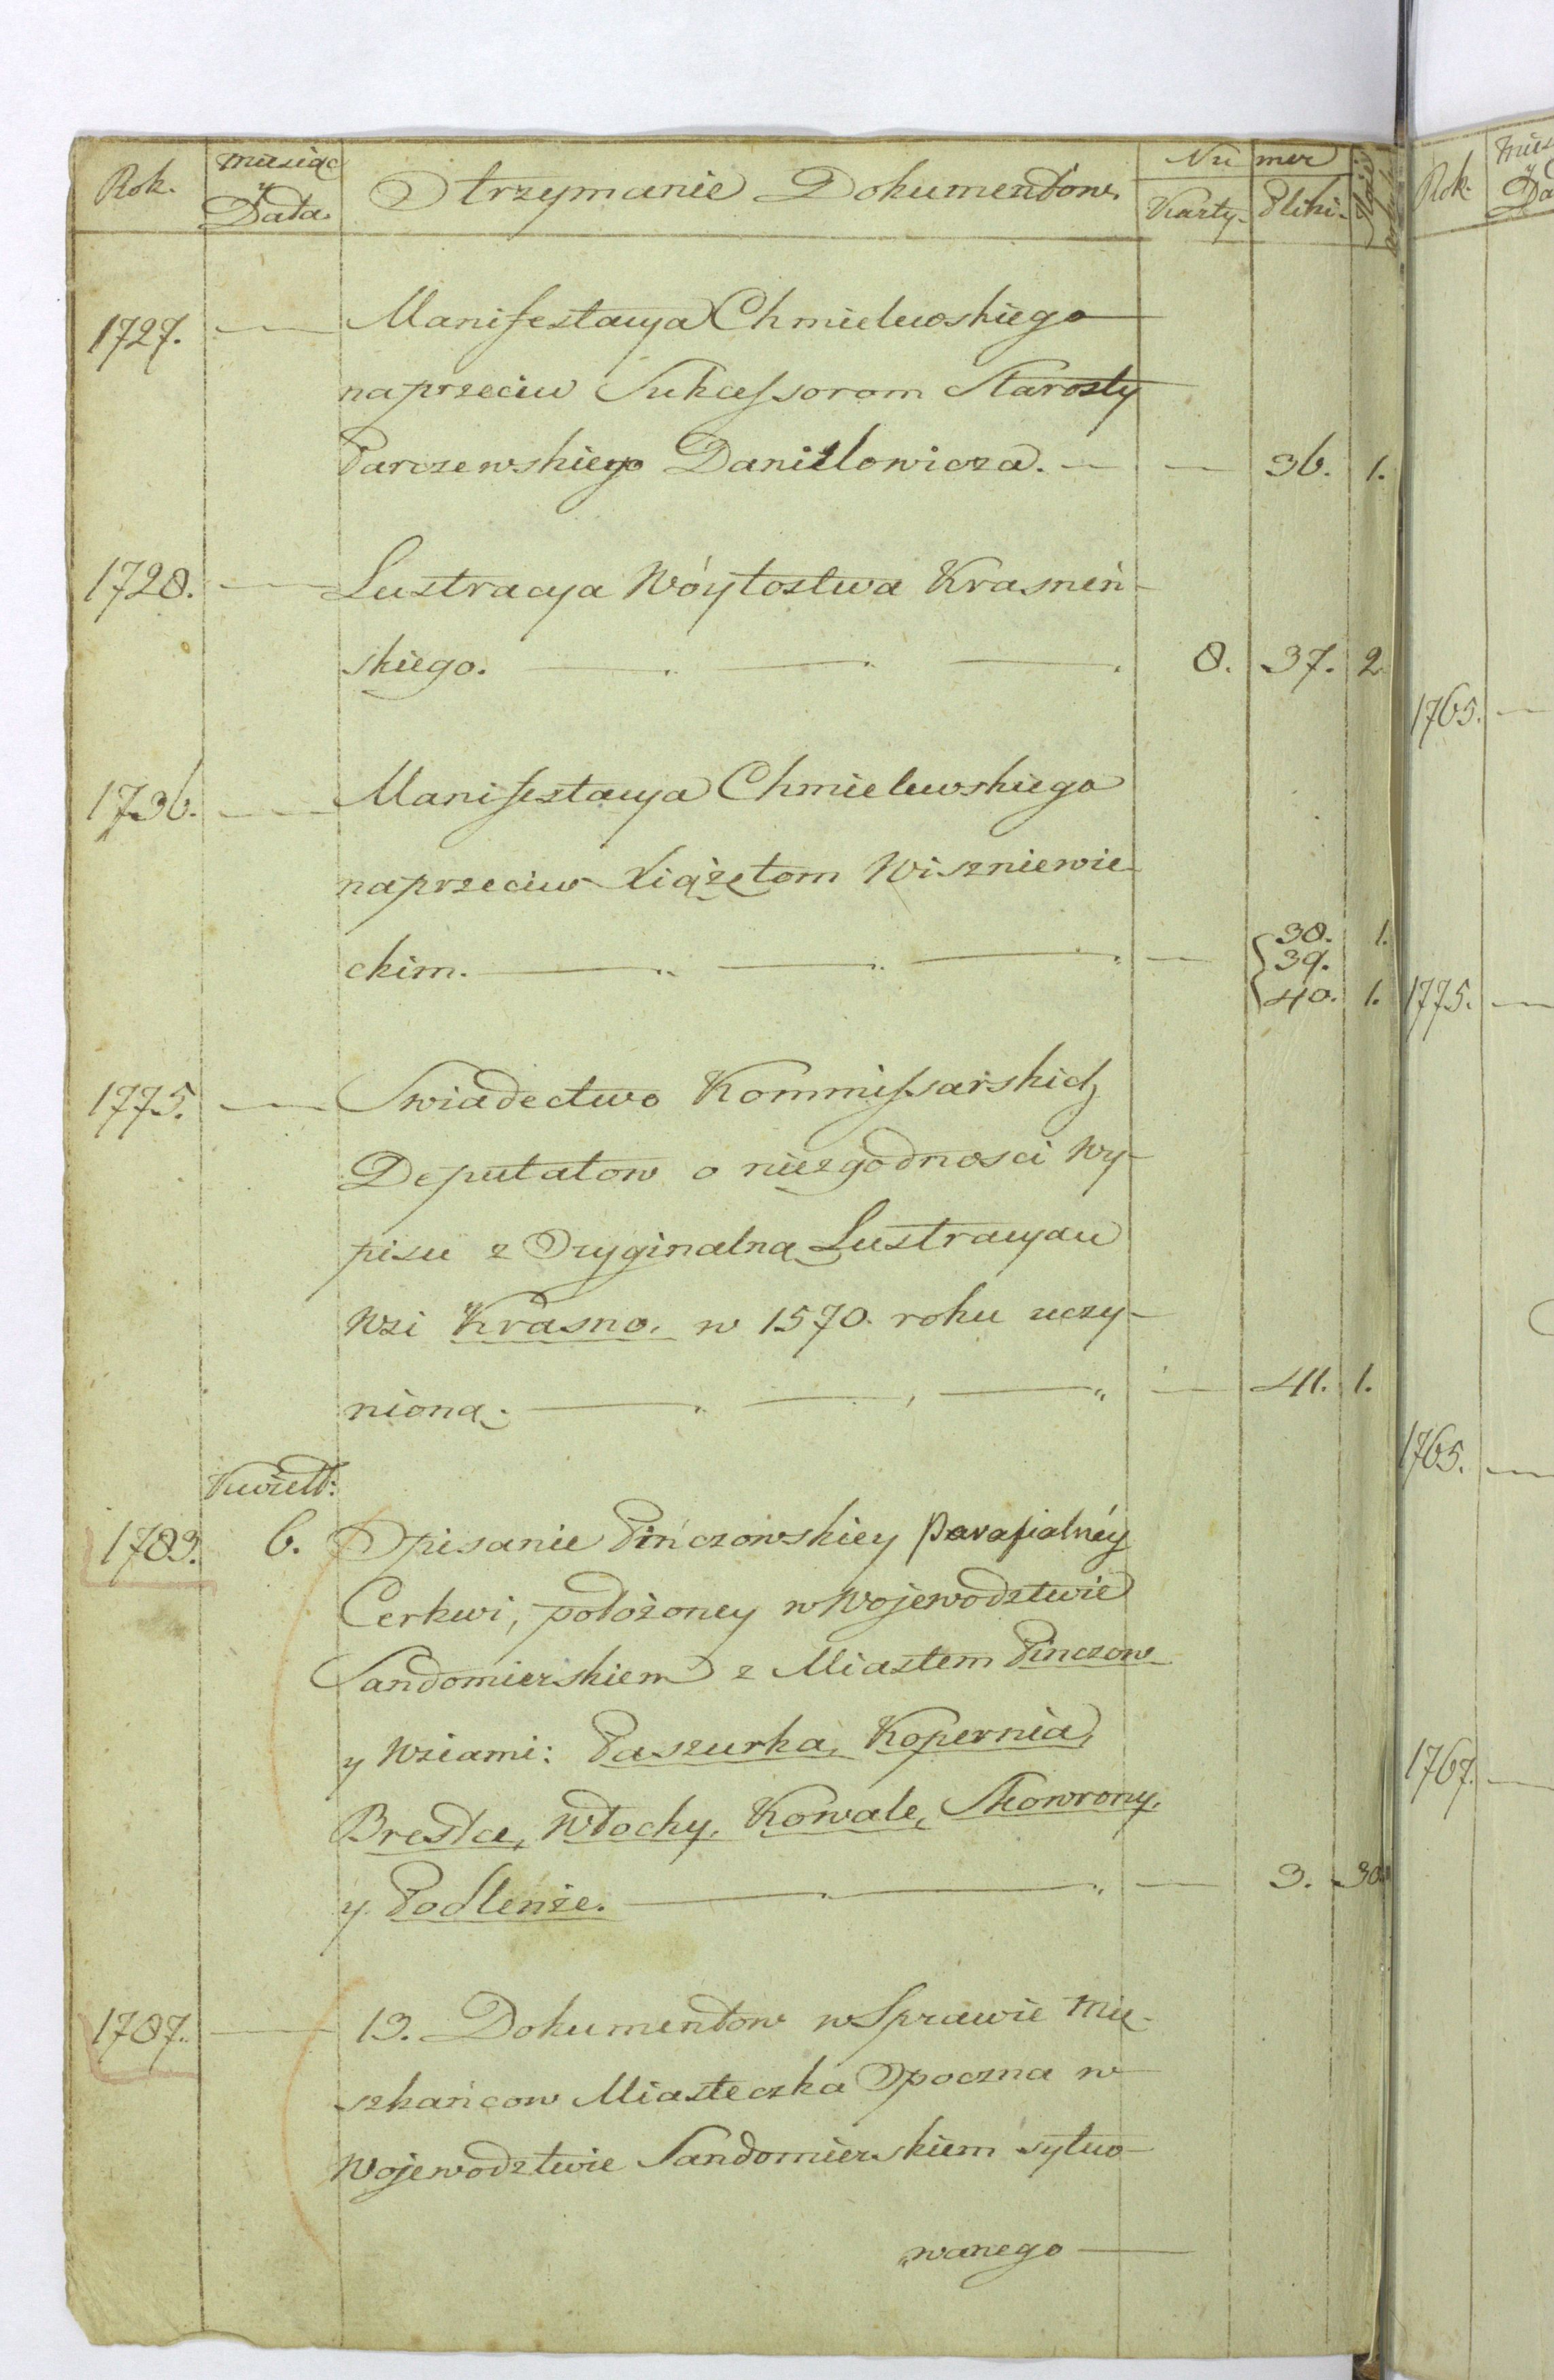 Rok. Miesiąc y Data. Otrzymanie Dokumentow. Nu mer
Karty. Pliki.
1727. — Manifestacya Chmielewskiego
naprzeciw Sukcessorom Starosty
Parczewskiego Daniłłowicza. — — 36. 1.
1728. — Lustracya Wóytostwa Krasneń-
skiego. — . — . — . 8. 37. 2
1736. — Manifestacya Chmielewskiego
naprzeciw Xiążętom Wiszniewie-
38. 1.
ckim. — .. — .. — . — 39.
40. 1.
1775. — Swiadectwo Kommissarskich
Deputatow o niezgodnosci Wy-
pisu z Oryginalną Lustracyau
Wsi Krasno, w 1570. roku uczy-
nioną. — . — , — „ — 41. 1.
Kwiett:
1783. 6. Opisanie Pińczowskiey Parafialnéy
Cerkwi, położoney w Wojewodztwie
Sandomierskiem z Miastem Pinczow
y Wsiami: Paszurka, Kopernia,
Brestce, Włochy, Kowale, Skowrony,
y Podlenże. — . — „ — 3. 30.
1787. — 13. Dokumentow w Sprawie Mie-
szkańcow Miasteczka Opoczna w
Wojewodztwie Sandomierskiem sytuo-
wanego —
Rok.
1765. —
1775. —
1765. —
1767. —